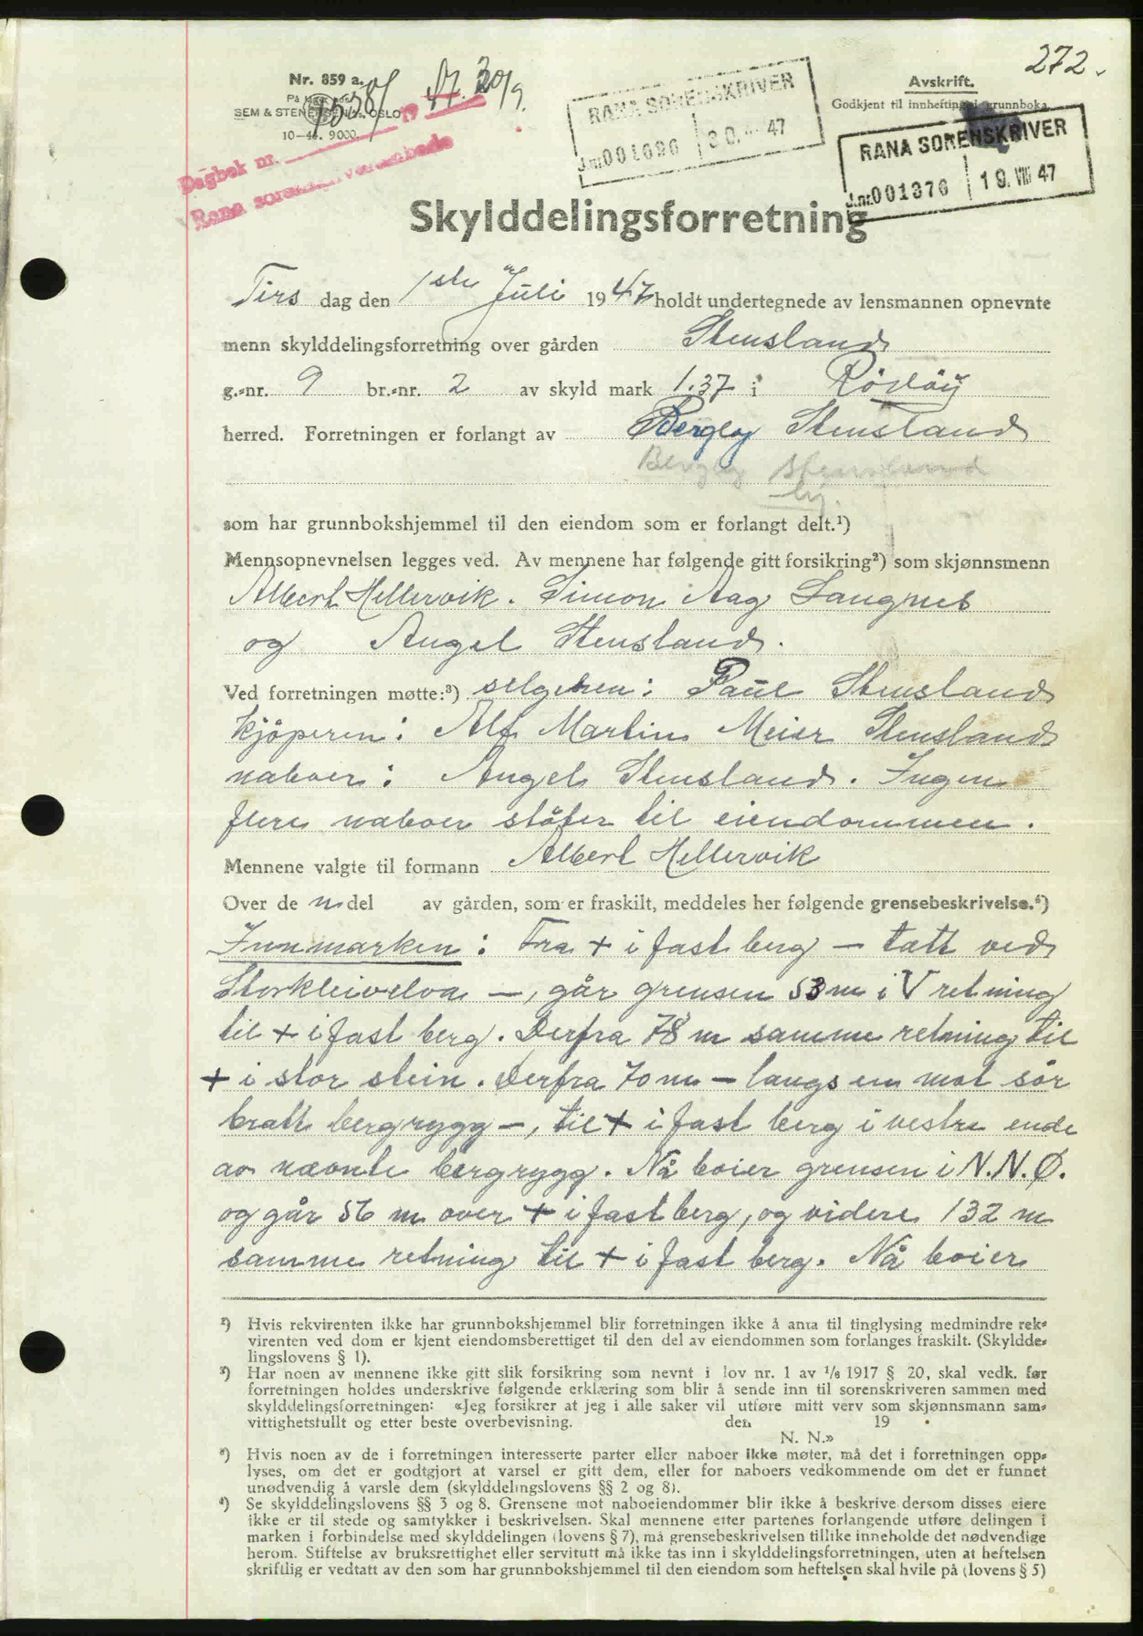 272.
Nr. 859 a.
SEM & STENERSEN A/S OSLO
10-46. 9000.
Dagbok nr. 19
Rana sorenskriverembede
30/9.
RANA SORENSKRIVER
J.nr. 001696 30. 47
Avskrift.
Godkjent til innhefting i grunnboka
RANA SORENSKRIVER
J.nr. 001376 19. VIII 47
Skylddelingsforretning
Tirs dag den 1ste Juli 1947 holdt undertegnede av lensmannen opnevnte
menn skylddelingsforretning over gården Stensland
g.-nr. 9 br.-nr. 2 av skyld mark 1.37 i Rödöy
herred. Forretningen er forlangt av Bergloy Stensland
Stensland
som har grunnbokshjemmel til den eiendom som er forlangt delt.¹)
Mennsopnevnelsen legges ved. Av mennene har følgende gitt forsikring²) som skjønnsmenn
Albert Hellervik. Simon Aag Langnes
og Angel Stensland.
Ved forretningen møtte:³) selgeren: Paul Stensland
Kjöperen: Alf Martin Meier Stensland
naboer: Angel Stensland. Ingen
flere naboer stöter til eiendommen.
Mennene valgte til formann Albert Hellervik
Over de n del av gården, som er fraskilt, meddeles her følgende grensebeskrivelse.⁴)
Innmarken: Fra + i fast berg – tett ved
Storkleivelva –, går grensen 53 m i V retning
til + i fast berg. Derfra 78 m samme retning til
+ i stor stein. Derfra 70 m – langs en mot sör
bratt bergrygg –, til + i fast berg i vestre ende
av nævnte bergrygg. Nå böier grensen i N.N.Ø.
og går 56 m over + i fast berg, og videre 132 m
samme retning til + i fast berg. Nå böier
²) Hvis rekvirenten ikke har grunnbokshjemmel blir forretningen ikke å anta til tinglysing medmindre rek-
virenten ved dom er kjent eiendomsberettiget til den del av eiendommen som forlanges fraskilt. (Skyldde-
lingslovens § 1).
³) Har noen av mennene ikke gitt slik forsikring som nevnt i lov nr. 1 av 1/8 1917 § 20, skal vedk. før
forretningen holdes underskrive følgende erklæring som blir å sende inn til sorenskriveren sammen med
skylddelingsforretningen: «Jeg forsikrer at jeg i alle saker vil utføre mitt verv som skjønnsmann sam-
vittighetsfullt og etter beste overbevisning. den 19 .
N. N.»
⁴) Hvis noen av de i forretningen interesserte parter eller naboer ikke møter, må det i forretningen opp-
lyses, om det er godtgjort at varsel er gitt dem, eller for naboers vedkommende om det er funnet
unødvendig å varsle dem (skylddelingslovens §§ 2 og 8).
⁴) Se skylddelingslovens §§ 3 og 8. Grensene mot naboeiendommer blir ikke å beskrive dersom disses eiere
ikke er til stede og samtykker i beskrivelsen. Skal mennene etter partenes forlangende utføre delingen i
marken i forbindelse med skylddelingen (lovens § 7), må grensebeskrivelsen tillike inneholde det nødvendige
herom. Stiftelse av bruksrettighet eller servitutt må ikke tas inn i skylddelingsforretningen, uten at heftelsen
skriftlig er vedtatt av den som har grunnbokshjemmel til den eiendom som heftelsen skal hvile på (lovens § 5)